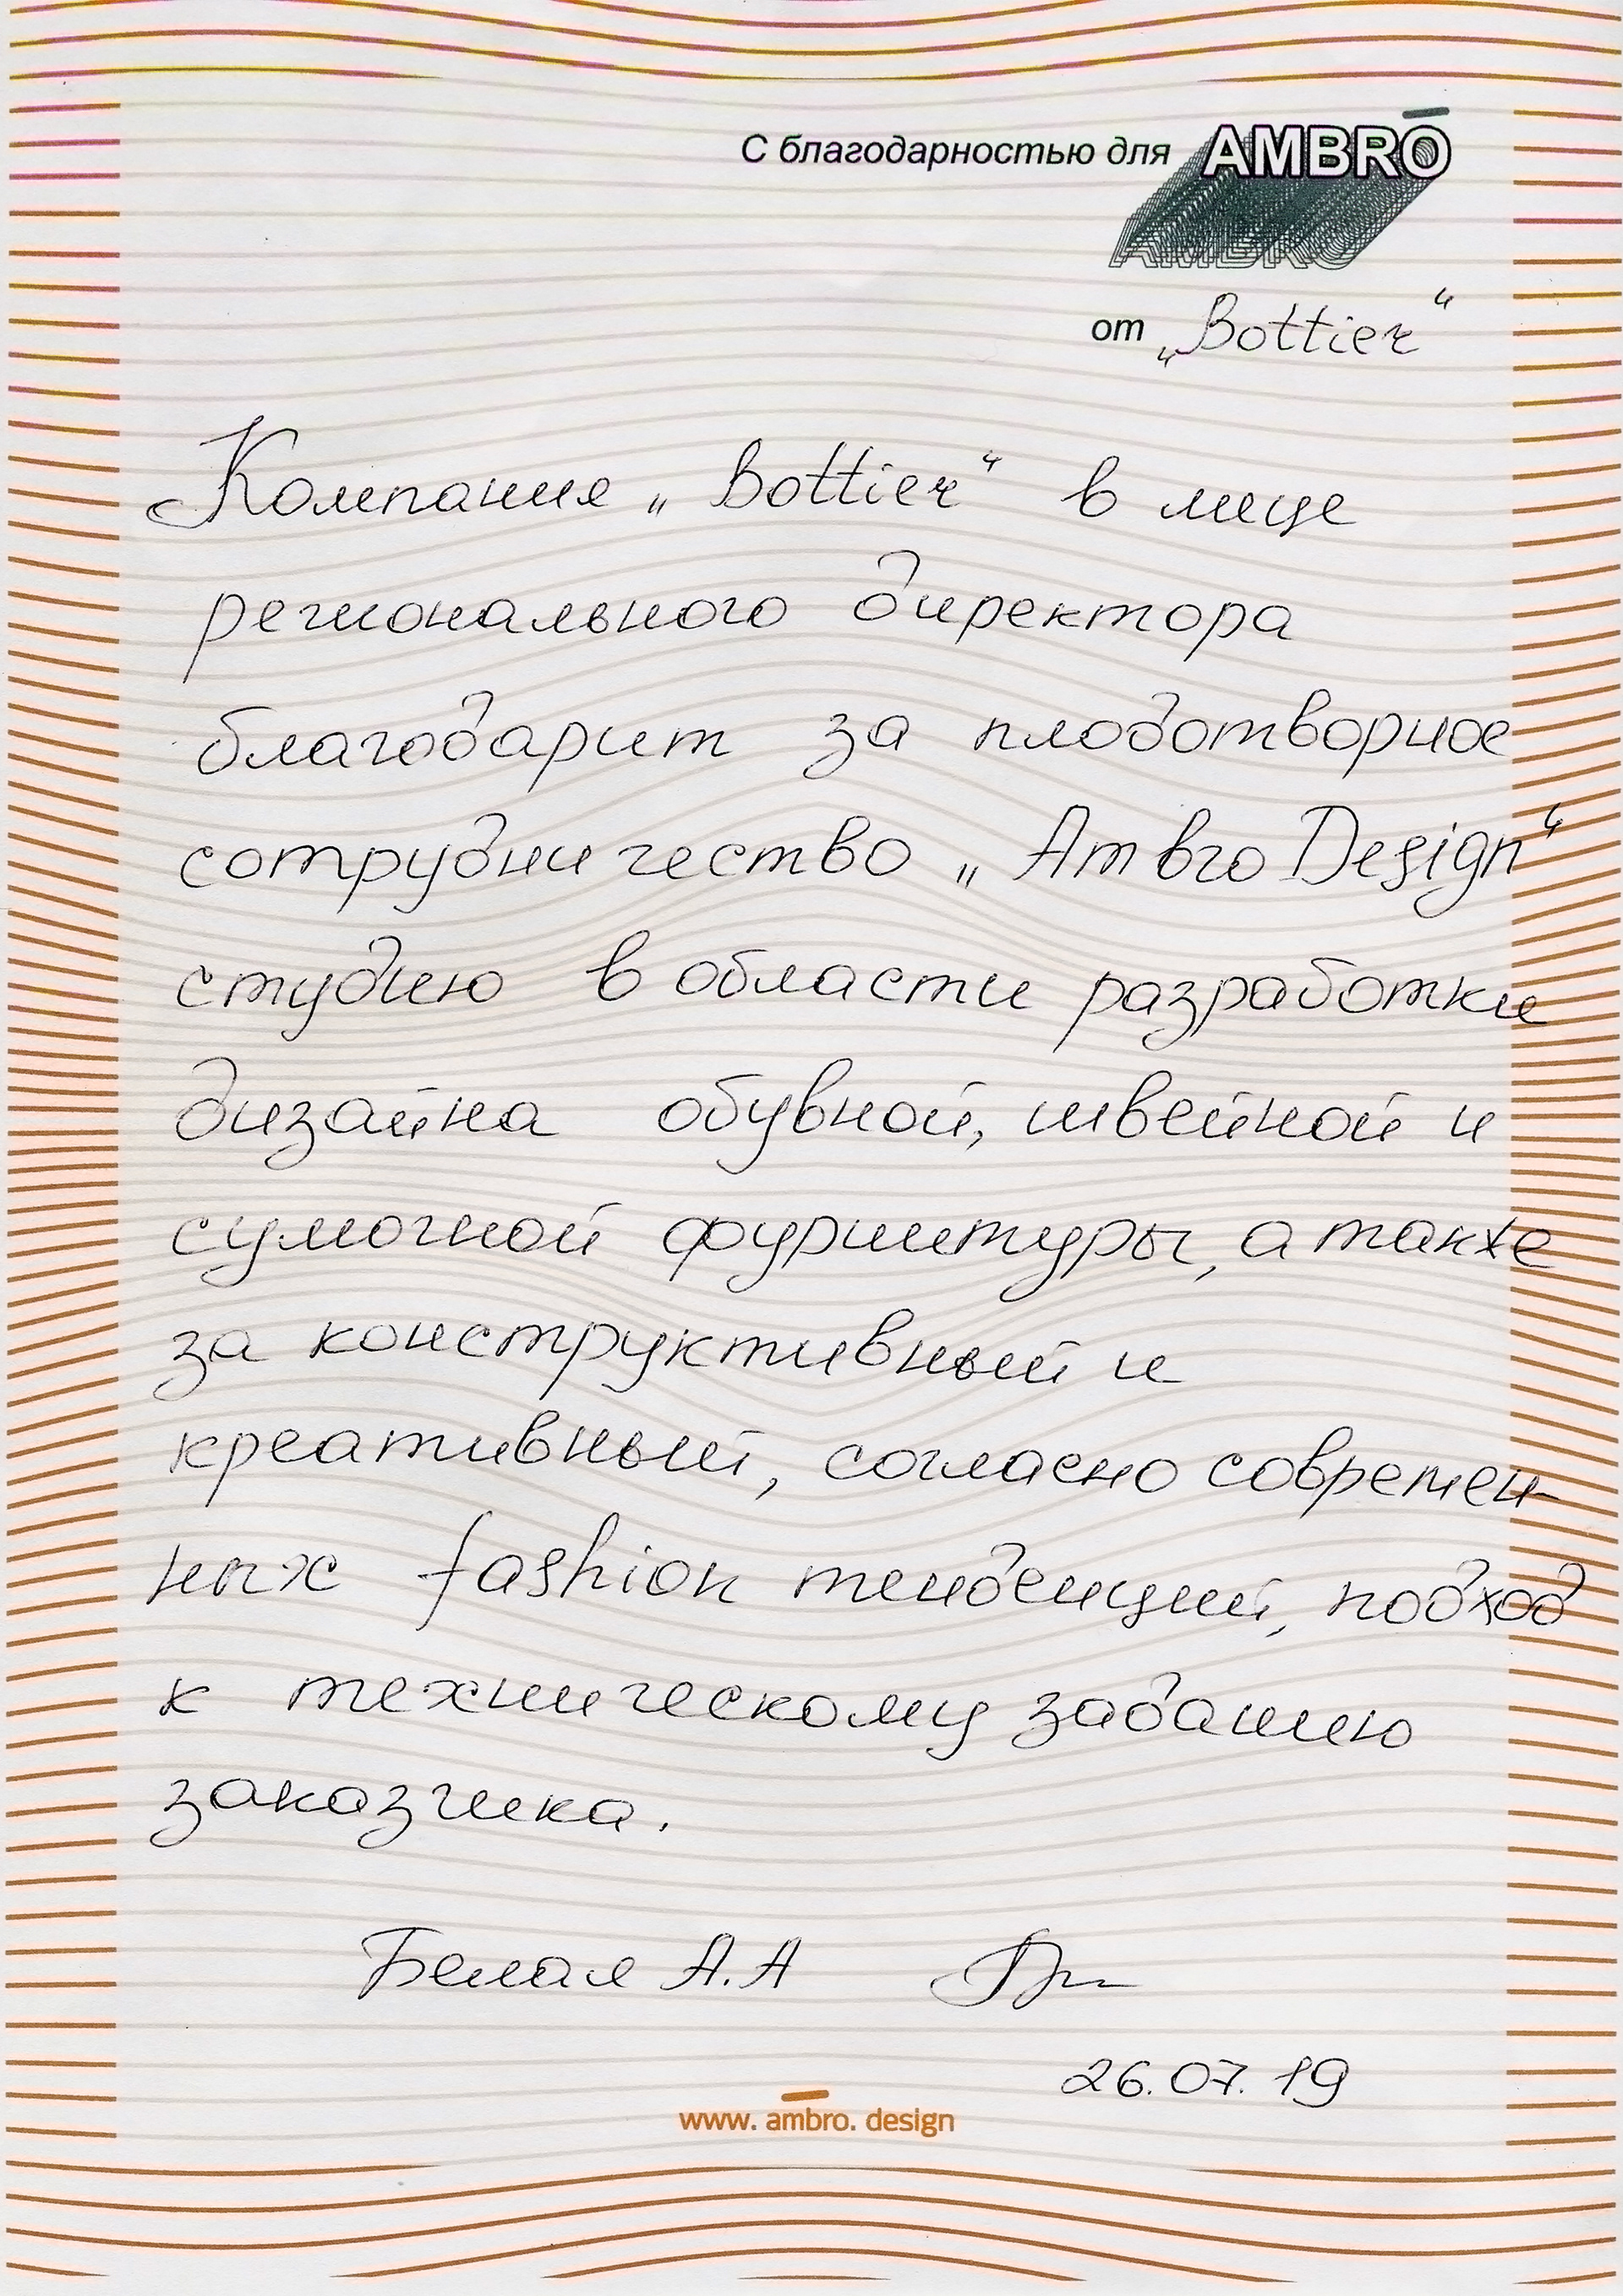 С благодарностью для AMBRŌ
AMBRO
от „Bottier“
Компания „Bottier“ в лице
регионального директора
благодарит за плодотворное
сотрудничество „Ambro Design“
студию в области разработки
дизайна обувной, швейной и
сумочной фурнитуры, а также
за конструктивный и
креативный, согласно современ-
ных fashion тенденций, подход
к техническому заданию
заказчика.
Белая А.А
26.07.19
www. ambro. design